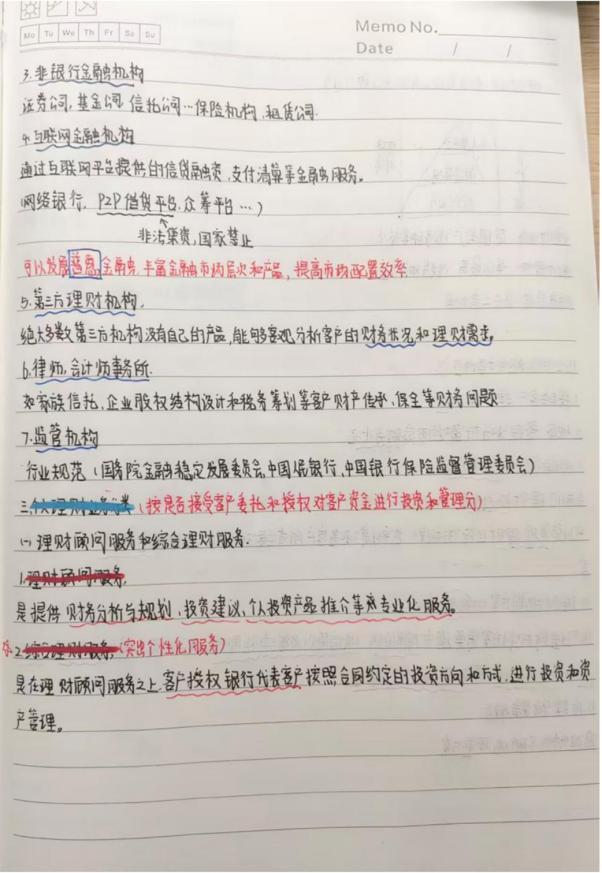 Mo Tu We Th Fr Sa Su
Memo No.
Date / /
3.非银行金融机构
证券公司,基金公司,信托公司…保险机构,租赁公司.
4.互联网金融机构
通过互联网平台提供的信贷融资,支付清算等金融服务。
(网络银行,P2P借贷平台,众筹平台…)
非法集资,国家禁止
可以发展普惠金融,丰富金融市场层次和产品,提高市场配置效率
5.第三方理财机构.
绝大多数第三方机构没有自己的产品,能够客观分析客户的财务状况和理财需求。
6.律师,会计师事务所.
如家族信托,企业股权结构设计和税务筹划等客户财产传承、保全等财务问题
7.监管机构
行业规范(国务院金融稳定发展委员会,中国人民银行,中国银行保险监督管理委员会)
三.个人理财业务分类(按是否接受客户委托和授权对客户资金进行投资和管理分)
(一)理财顾问服务和综合理财服务.
1.理财顾问服务.
是提供财务分析与规划,投资建议,个人投资产品推介等专业化服务。
※2.综合理财服务(突出个性化服务)
是在理财顾问服务之上,客户授权银行代表客户按照合同约定的投资方向和方式,进行投资和资
产管理。